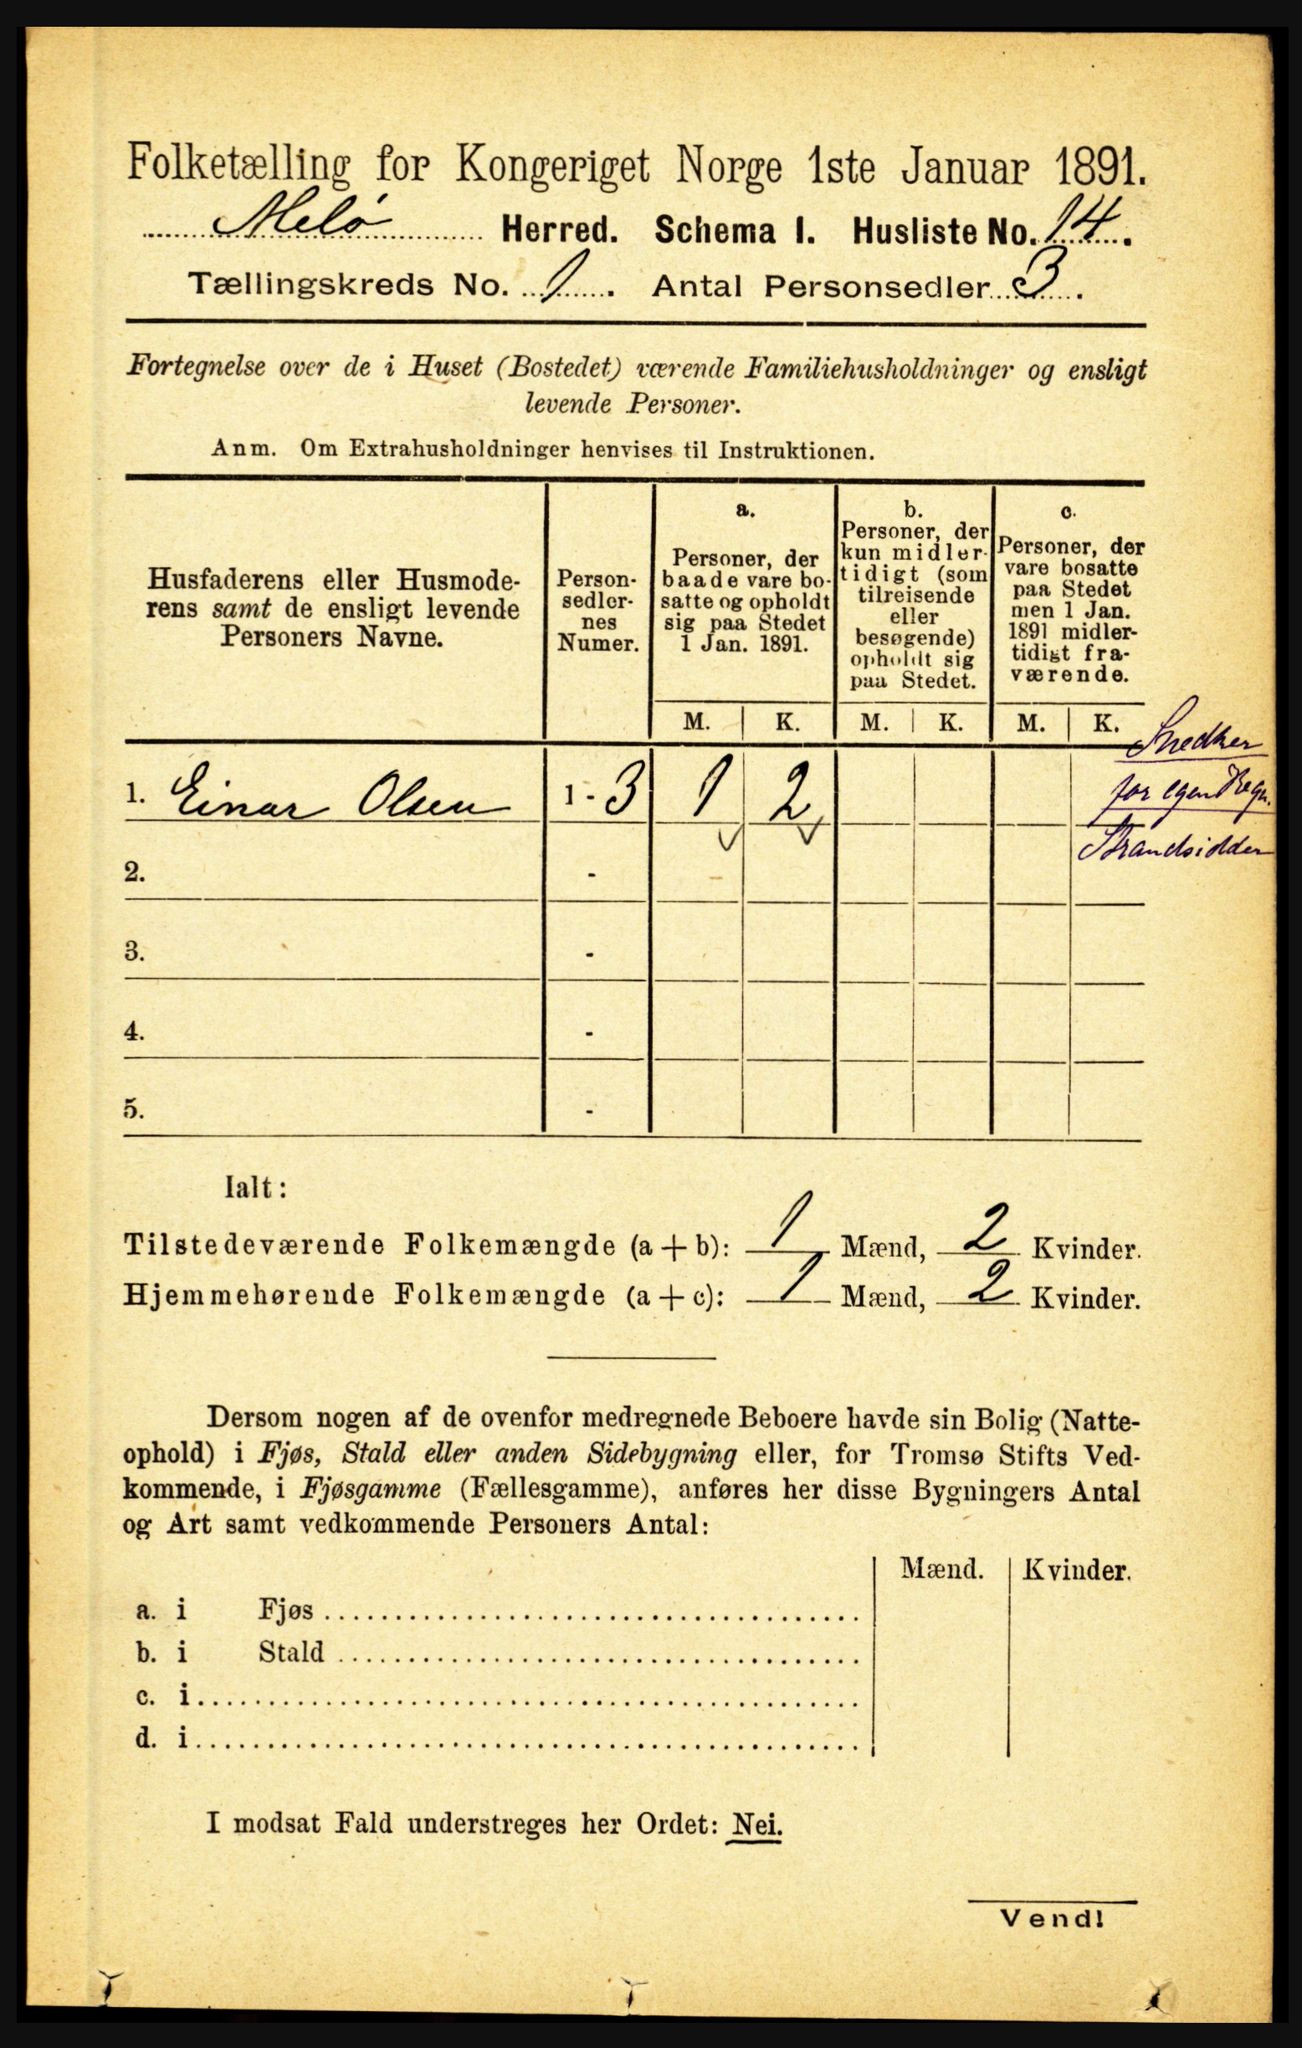 Folketælling for Kongeriget Norge 1ste Januar 1891.
Melø Herred. Schema I. Husliste No. 14.
Tællingskreds No. 1. Antal Personsedler 3.
Fortegnelse over de i Huset (Bostedet) værende Familiehusholdninger og ensligt
levende Personer.
Anm. Om Extrahusholdninger henvises til Instruktionen.
Husfaderens eller Husmode-
rens samt de ensligt levende
Personers Navne.
Person-
sedler-
nes
Numer.
a.
Personer, der
baade vare bo-
satte og opholdt
sig paa Stedet
1 Jan. 1891.
b.
Personer, der
kun midler-
tidigt (som
tilreisende
eller
besøgende)
opholdt sig
paa Stedet.
c.
Personer, der
vare bosatte
paa Stedet
men 1 Jan.
1891 midler-
tidigt fra-
værende.
M. K. M. K. M. K.
Snedker
for egen Regn.
Strandsidder
1. Einar Olsen 1 - 3 1 2
2. -
3. -
4. -
5. -
Ialt:
Tilstedeværende Folkemængde (a + b): 1 Mænd, 2 Kvinder.
Hjemmehørende Folkemængde (a + c): 1 Mænd, 2 Kvinder.
Dersom nogen af de ovenfor medregnede Beboere havde sin Bolig (Natte-
ophold) i Fjøs, Stald eller anden Sidebygning eller, for Tromsø Stifts Ved-
kommende, i Fjøsgamme (Fællesgamme), anføres her disse Bygningers Antal
og Art samt vedkommende Personers Antal:
Mænd. Kvinder.
a. i Fjøs
b. i Stald
c. i
d. i
I modsat Fald understreges her Ordet: Nei.
Vend!